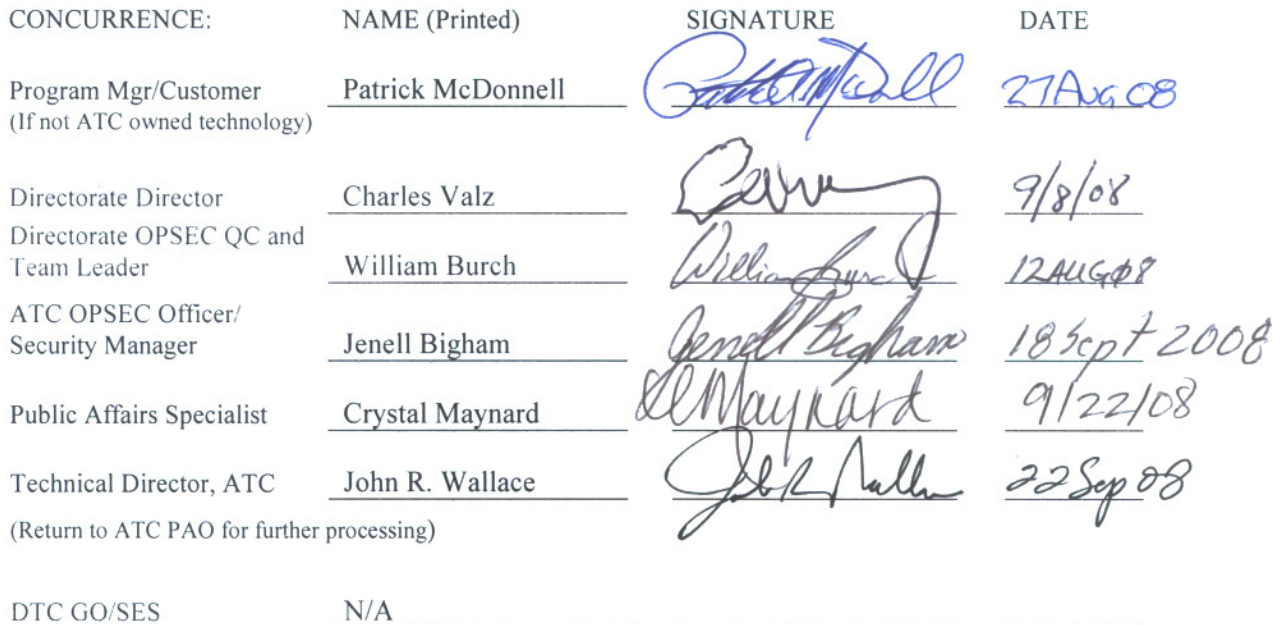 CONCURRENCE: NAME (Printed) SIGNATURE DATE
Program Mgr/Customer Patrick McDonnell 27 AUG 08
(If not ATC owned technology)
Directorate Director Charles Valz 9/8/08
Directorate OPSEC QC and
Team Leader William Burch William Burch 12AUG08
ATC OPSEC Officer/
Security Manager Jenell Bigham Jenell Bigham 18 Sept 2008
Public Affairs Specialist Crystal Maynard Maynard 9/22/08
Technical Director, ATC John R. Wallace 22 Sep 08
(Return to ATC PAO for further processing)
DTC GO/SES N/A